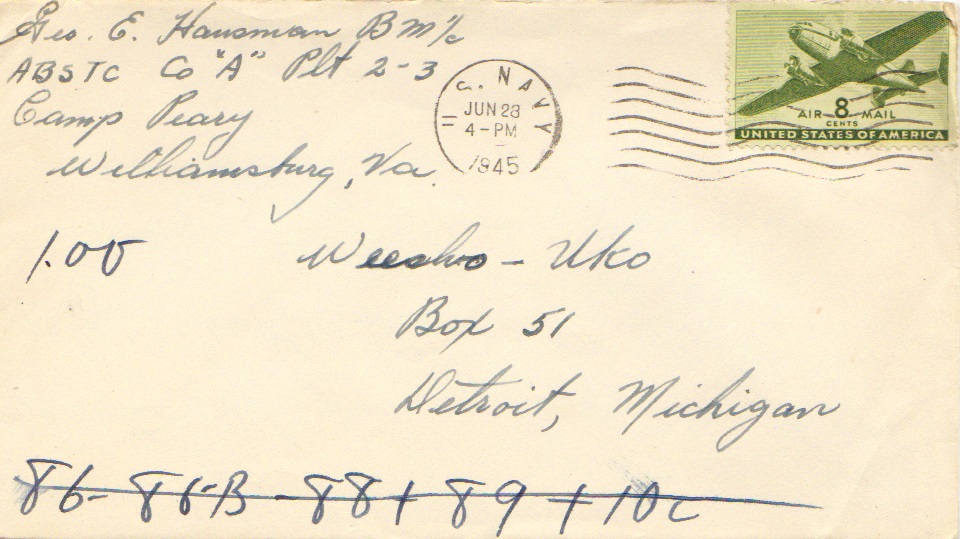 Geo. E. Hausman BM 1/c
ABSTC Co "A" Plt 2-3
Camp Peary
Williamsburg, Va.
S. NAVY
JUN 28
4-PM
1945
AIR 8 MAIL
CENTS
UNITED STATES OF AMERICA
1.00
Uko
Box 51
Detroit, Michigan
86- 88-B - 88 + 89 + 10c